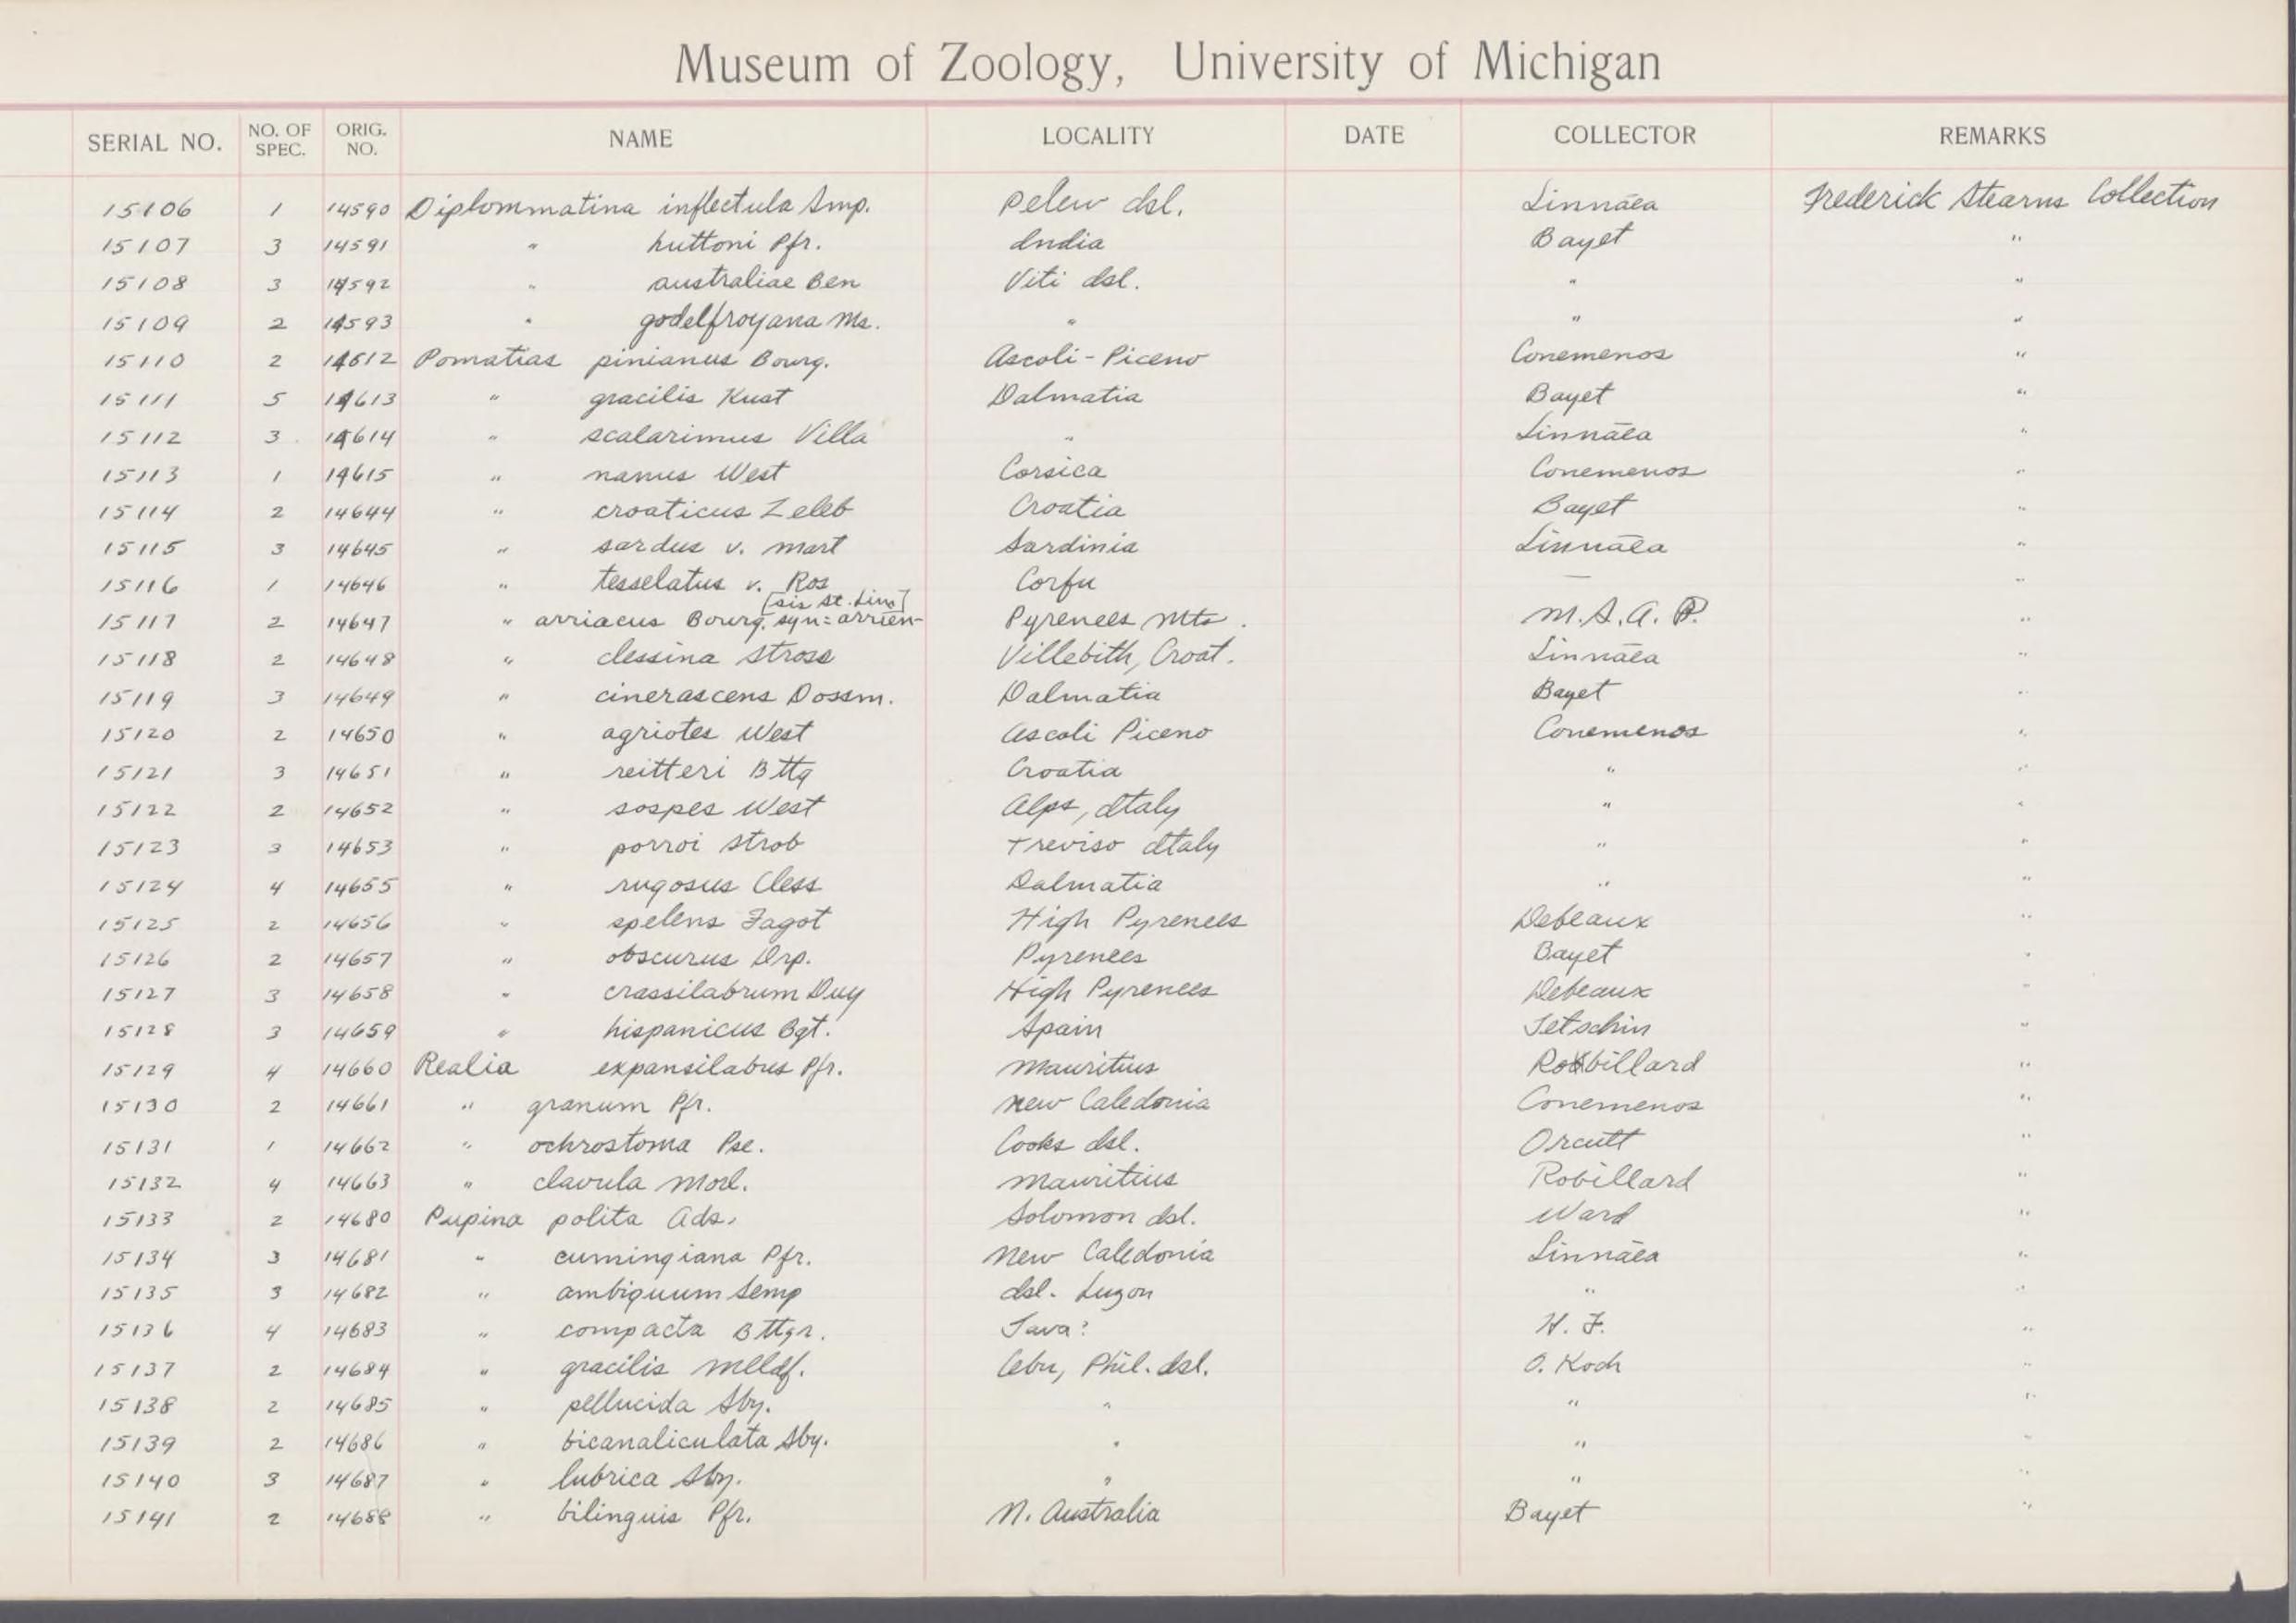 Museum of Zoology, University of Michigan
SERIAL NO. NO. OF SPEC. ORIG. NO. NAME LOCALITY DATE COLLECTOR REMARKS
15106 1 14590 Diplommatina inflectula Smp. Pelew Isl. Linnäea Frederick Stearns Collection
15107 3 14591 " huttoni Pfr. India Bayet "
15108 3 14592 " australiae Ben Viti Isl. " "
15109 2 14593 " godelfroyana Ms. " " "
15110 2 14612 Pomatias pinianus Bourg. Ascoli-Piceno Conemenos "
15111 5 14613 " gracilis Kust Dalmatia Bayet "
15112 3 14614 " scalarimus Villa " Linnäea "
15113 1 14615 " nanus West Corsica Conemenos "
15114 2 14644 " croaticus Zeleb Croatia Bayet "
15115 3 14645 " sardus v. mart Sardinia Linnäea "
15116 1 14646 " tesselatus v. Ros Corfu — "
15117 2 14647 " arriacus Bourg. syn = arrien- [sis St. Sim] Pyrenees Mts. M.S.A.P. "
15118 2 14648 " clessina Stross Villebith, Croat. Linnäea "
15119 3 14649 " cinerascens Dossm. Dalmatia Bayet "
15120 2 14650 " agriotes West Ascoli Piceno Conemenos "
15121 3 14651 " reitteri Bttg Croatia " "
15122 2 14652 " sospes West Alps, Italy " "
15123 3 14653 " porroi Strob Treviso Italy " "
15124 4 14655 " rugosus Cless Dalmatia " "
15125 2 14656 " spelens Fagot High Pyrenees Debeaux "
15126 2 14657 " obscurus Drp. Pyrenees Bayet "
15127 3 14658 " crassilabrum Duy High Pyrenees Debeaux "
15128 3 14659 " hispanicus Bgt. Spain Jetschin "
15129 4 14660 Realia expansilabus Pfr. Mauritius Robillard "
15130 2 14661 " granum Pfr. New Caledonia Conemenos "
15131 1 14662 " ochrostoma Pse. Cooks Isl. Orcutt "
15132 4 14663 " clavula Morl. Mauritius Robillard "
15133 2 14680 Pupina polita Ads. Solomon Isl. Ward "
15134 3 14681 " cumingiana Pfr. New Caledonia Linnäea "
15135 3 14682 " ambiguum Semp Isl. Luzon " "
15136 4 14683 " compacta Bttgr. Java? H. F. "
15137 2 14684 " gracilis Mlldf. Cebu, Phil. Isl. O. Koch "
15138 2 14685 " pellucida Sby. " " "
15139 2 14686 " bicanaliculata Sby. " " "
15140 3 14687 " lubrica Sby. " " "
15141 2 14688 " bilinguis Pfr. N. Australia Bayet "